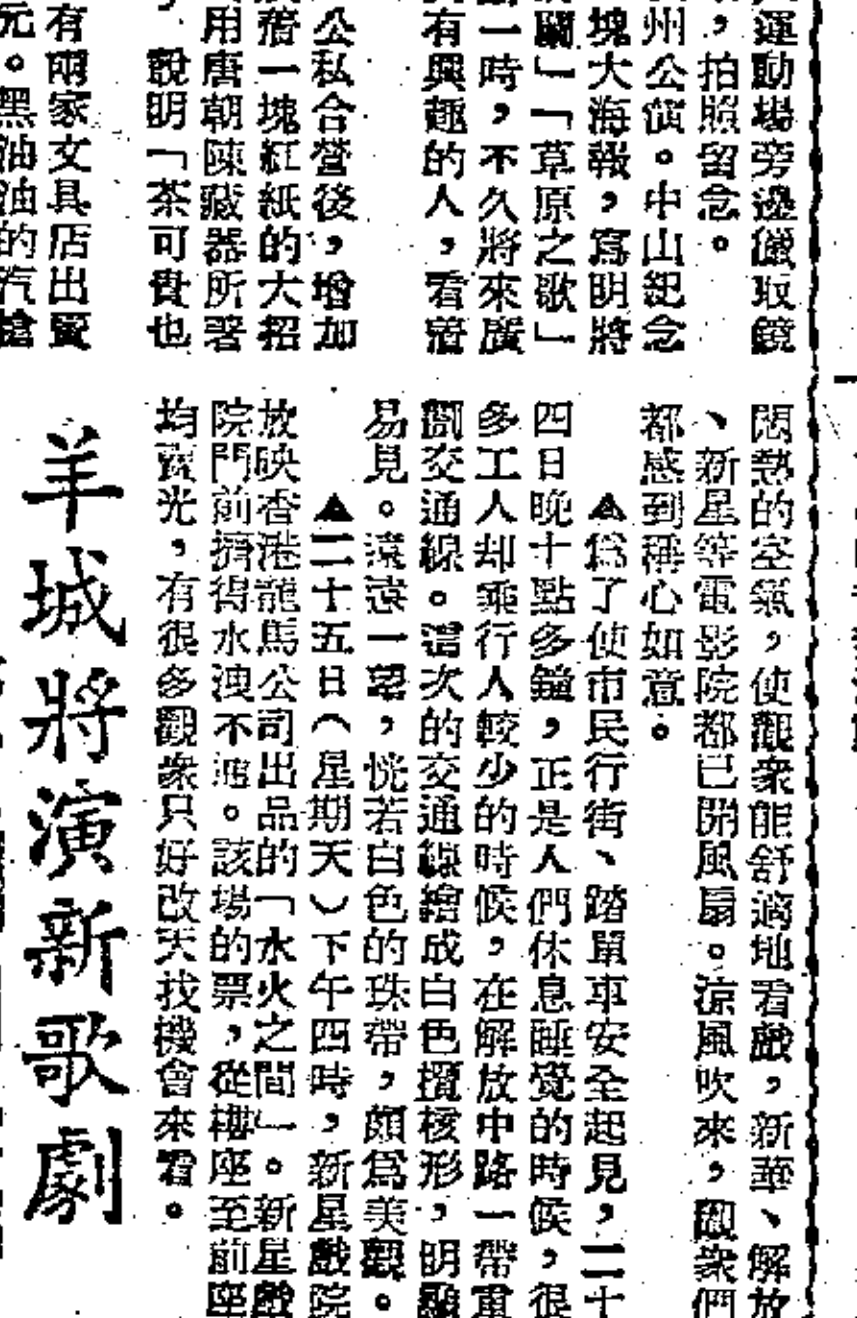 運動場旁邊儼取鏡
，拍照留念。
州公演。中山紀念
塊大海報，寫明將
蘭」「草原之歌」
一時，不久將來廣
有興趣的人，看齋
公私合營後，增加
一塊紅紙的大招
用唐朝陳藏器所著
說明「茶可貴也
有兩家文具店出賣
元。黑油油的汽槍
悶熱的空氣，使觀衆能舒適地看戲，新華、解放
、新星等電影院都已開風扇。涼風吹來，觀衆們
都感到稱心如意。
▲爲了使市民行街、踏單車安全起見，二十
四日晚十點多鐘，正是人們休息睡覺的時候，很
多工人却乘行人較少的時候，在解放中路一帶重
劃交通線。這次的交通線繪成白色欖核形，明顯
易見。遠遠一望，恍若白色的珠帶，頗爲美觀。
▲二十五日（星期天）下午四時，新星戲院
放映香港龍馬公司出品的「水火之間」。新星戲
院門前擠得水洩不通。該場的票，從樓座至前座
均賣光，有很多觀衆只好改天找機會來看。
羊城將演新歌劇